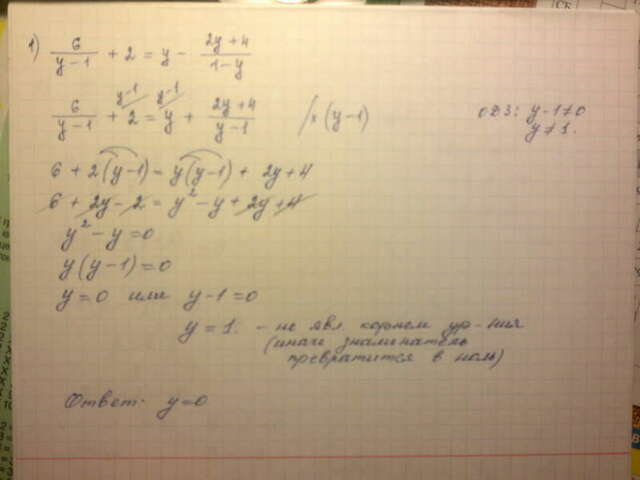 1) 6/(y-1) + 2 = y - (2y+4)/(1-y)
6/(y-1) + 2 = y + (2y+4)/(y-1) /× (y-1)
y-1 y-1
ОДЗ: y-1≠0
y≠1.
6 + 2(y-1) = y(y-1) + 2y+4
6 + 2y - 2 = y² - y + 2y + 4
y² - y = 0
y(y-1) = 0
y=0 или y-1=0
y=1. - не явл. корнем ур-ния
(иначе знаменатель
превратится в ноль)
Ответ: y=0